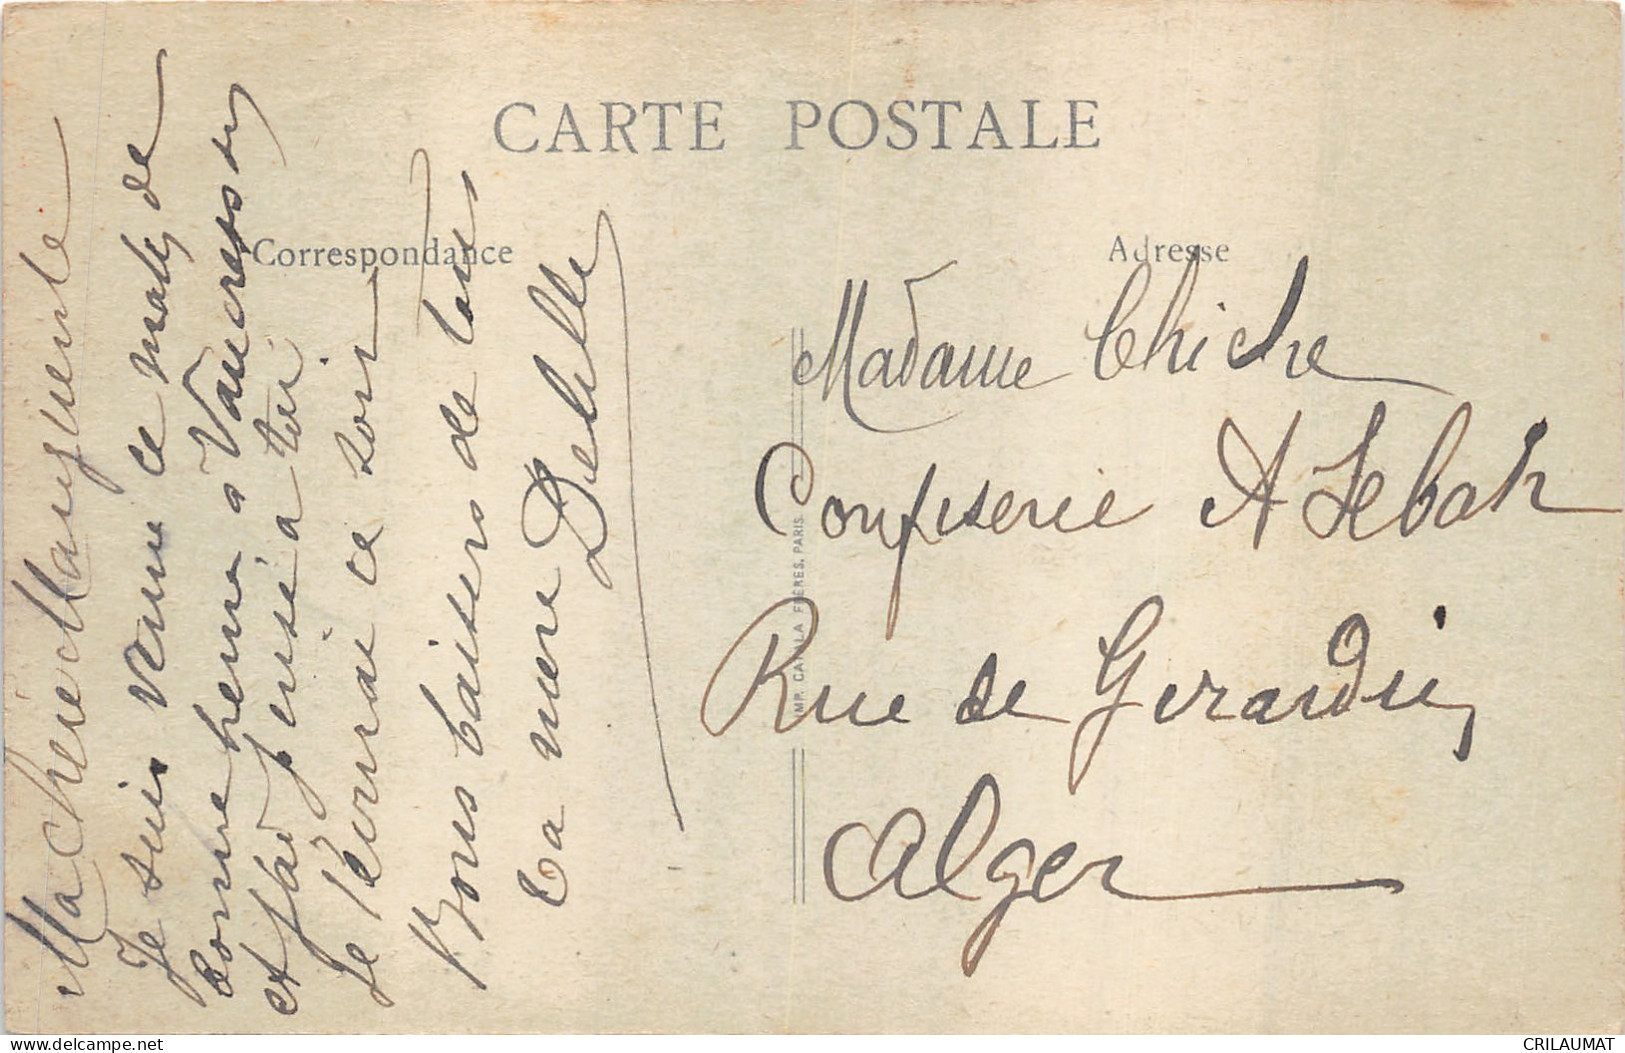 CARTE POSTALE
Correspondance
Adresse
Ma chère Marguerite
Je suis venue ce matin de
bonne heure à Vaucresson
et j'ai pensé à toi.
Je t'écrirai ce soir
Bons baisers de tous
Ta mère Debelle
Madame Chiche
Confiserie A Sebah
Rue de Gerardin,
Alger
IMP. CATALA FRERES, PARIS
www.delcampe.net
CRILAUMAT